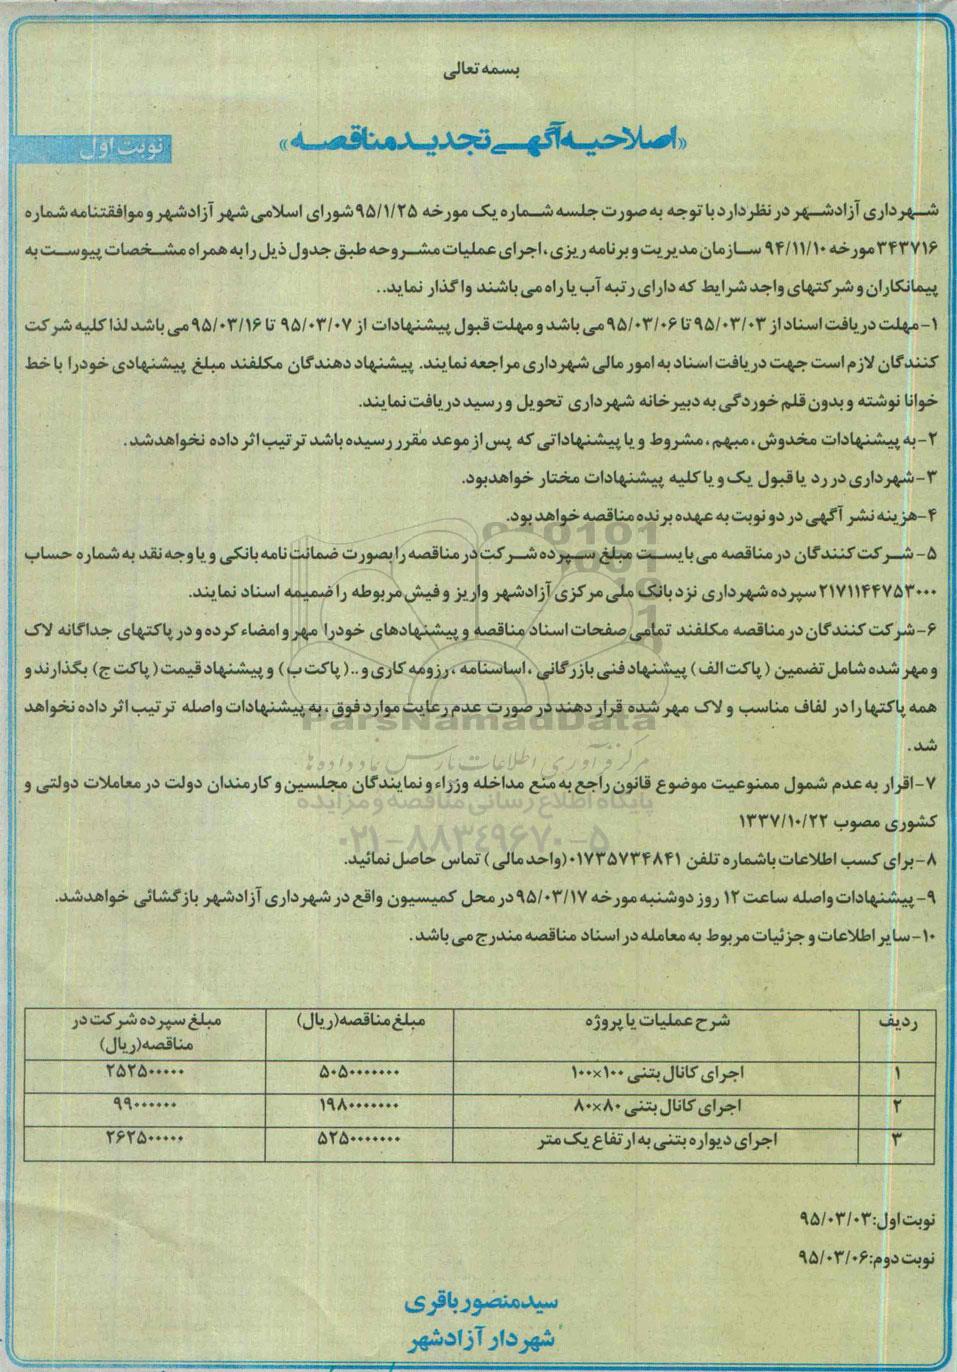 بسمه تعالی
«اصلاحیه آگهی تجدید مناقصه»
نوبت اول
شهرداری آزادشهر در نظر دارد با توجه به صورت جلسه شماره یک مورخه ۹۵/۱/۲۵ شورای اسلامی شهر آزادشهر و موافقتنامه شماره
۳۴۳۷۱۶ مورخه ۹۴/۱۱/۱۰ سازمان مدیریت و برنامه ریزی ، اجرای عملیات مشروحه طبق جدول ذیل را به همراه مشخصات پیوست به
پیمانکاران و شرکتهای واجد شرایط که دارای رتبه آب یا راه می باشند واگذار نماید..
۱- مهلت دریافت اسناد از ۹۵/۰۳/۰۳ تا ۹۵/۰۳/۰۶ می باشد و مهلت قبول پیشنهادات از ۹۵/۰۳/۰۷ تا ۹۵/۰۳/۱۶ می باشد لذا کلیه شرکت
کنندگان لازم است جهت دریافت اسناد به امور مالی شهرداری مراجعه نمایند. پیشنهاد دهندگان مکلفند مبلغ پیشنهادی خود را با خط
خوانا نوشته و بدون قلم خوردگی به دبیرخانه شهرداری تحویل و رسید دریافت نمایند.
۲- به پیشنهادات مخدوش ، مبهم ، مشروط و یا پیشنهاداتی که پس از موعد مقرر رسیده باشد ترتیب اثر داده نخواهد شد.
۳- شهرداری در رد یا قبول یک و یا کلیه پیشنهادات مختار خواهد بود.
۴- هزینه نشر آگهی در دو نوبت به عهده برنده مناقصه خواهد بود.
۵- شرکت کنندگان در مناقصه می بایست مبلغ سپرده شرکت در مناقصه را بصورت ضمانت نامه بانکی و یا وجه نقد به شماره حساب
۲۱۷۱۱۴۴۷۵۳۰۰۰ سپرده شهرداری نزد بانک ملی مرکزی آزادشهر واریز و فیش مربوطه را ضمیمه اسناد نمایند.
۶- شرکت کنندگان در مناقصه مکلفند تمامی صفحات اسناد مناقصه و پیشنهادهای خود را مهر و امضاء کرده و در پاکتهای جداگانه لاک
و مهر شده شامل تضمین ( پاکت الف) پیشنهاد فنی بازرگانی ، اساسنامه ، رزومه کاری و ..( پاکت ب) و پیشنهاد قیمت ( پاکت ج) بگذارند و
همه پاکتها را در لفاف مناسب و لاک مهر شده قرار دهند در صورت عدم رعایت موارد فوق ، به پیشنهادات واصله ترتیب اثر داده نخواهد
شد.
۷- اقرار به عدم شمول ممنوعیت موضوع قانون راجع به منع مداخله وزراء و نمایندگان مجلسین و کارمندان دولت در معاملات دولتی و
کشوری مصوب ۱۳۳۷/۱۰/۲۲
۸- برای کسب اطلاعات با شماره تلفن ۰۱۷۳۵۷۳۴۸۴۱ (واحد مالی) تماس حاصل نمائید.
۹- پیشنهادات واصله ساعت ۱۲ روز دوشنبه مورخه ۹۵/۰۳/۱۷ در محل کمیسیون واقع در شهرداری آزادشهر بازگشائی خواهد شد.
۱۰- سایر اطلاعات و جزئیات مربوط به معامله در اسناد مناقصه مندرج می باشد.
ParsNamadData
مرکز فرآوری اطلاعات پارس نماد داده ها
پایگاه اطلاع رسانی مناقصه و مزایده
۰۲۱-۸۸۳۴۹۶۷۰-۵
ردیف شرح عملیات یا پروژه مبلغ مناقصه(ریال) مبلغ سپرده شرکت در
مناقصه(ریال)
۱ اجرای کانال بتنی ۱۰۰×۱۰۰ ۵۰۵۰۰۰۰۰۰۰ ۲۵۲۵۰۰۰۰۰
۲ اجرای کانال بتنی ۸۰×۸۰ ۱۹۸۰۰۰۰۰۰۰ ۹۹۰۰۰۰۰۰
۳ اجرای دیواره بتنی به ارتفاع یک متر ۵۲۵۰۰۰۰۰۰۰ ۲۶۲۵۰۰۰۰۰
نوبت اول: ۹۵/۰۳/۰۳
نوبت دوم: ۹۵/۰۳/۰۶
سید منصور باقری
شهردار آزادشهر